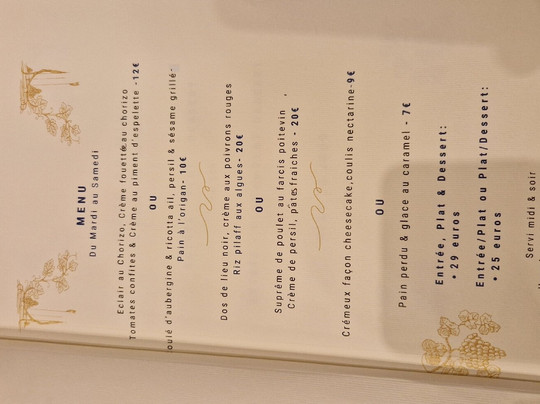 MENU
Du Mardi au Samedi
Eclair au Chorizo, Crème fouettée au chorizo
Tomates confites & Crème au piment d'espelette -12€
OU
oulé d'aubergine & ricotta ail, persil & sésame grillé-
Pain à l'origan- 10€
Dos de lieu noir, crème aux poivrons rouges
Riz pilaff aux algues- 20€
OU
Suprême de poulet au farcis poitevin
Crème de persil, pâtes fraiches - 20€
Crémeux façon cheesecake,coulis nectarine-9€
OU
Pain perdu & glace au caramel - 7€
Entrée, Plat & Dessert:
• 29 euros
Entrée/Plat ou Plat/Dessert:
• 25 euros
Servi midi & soir